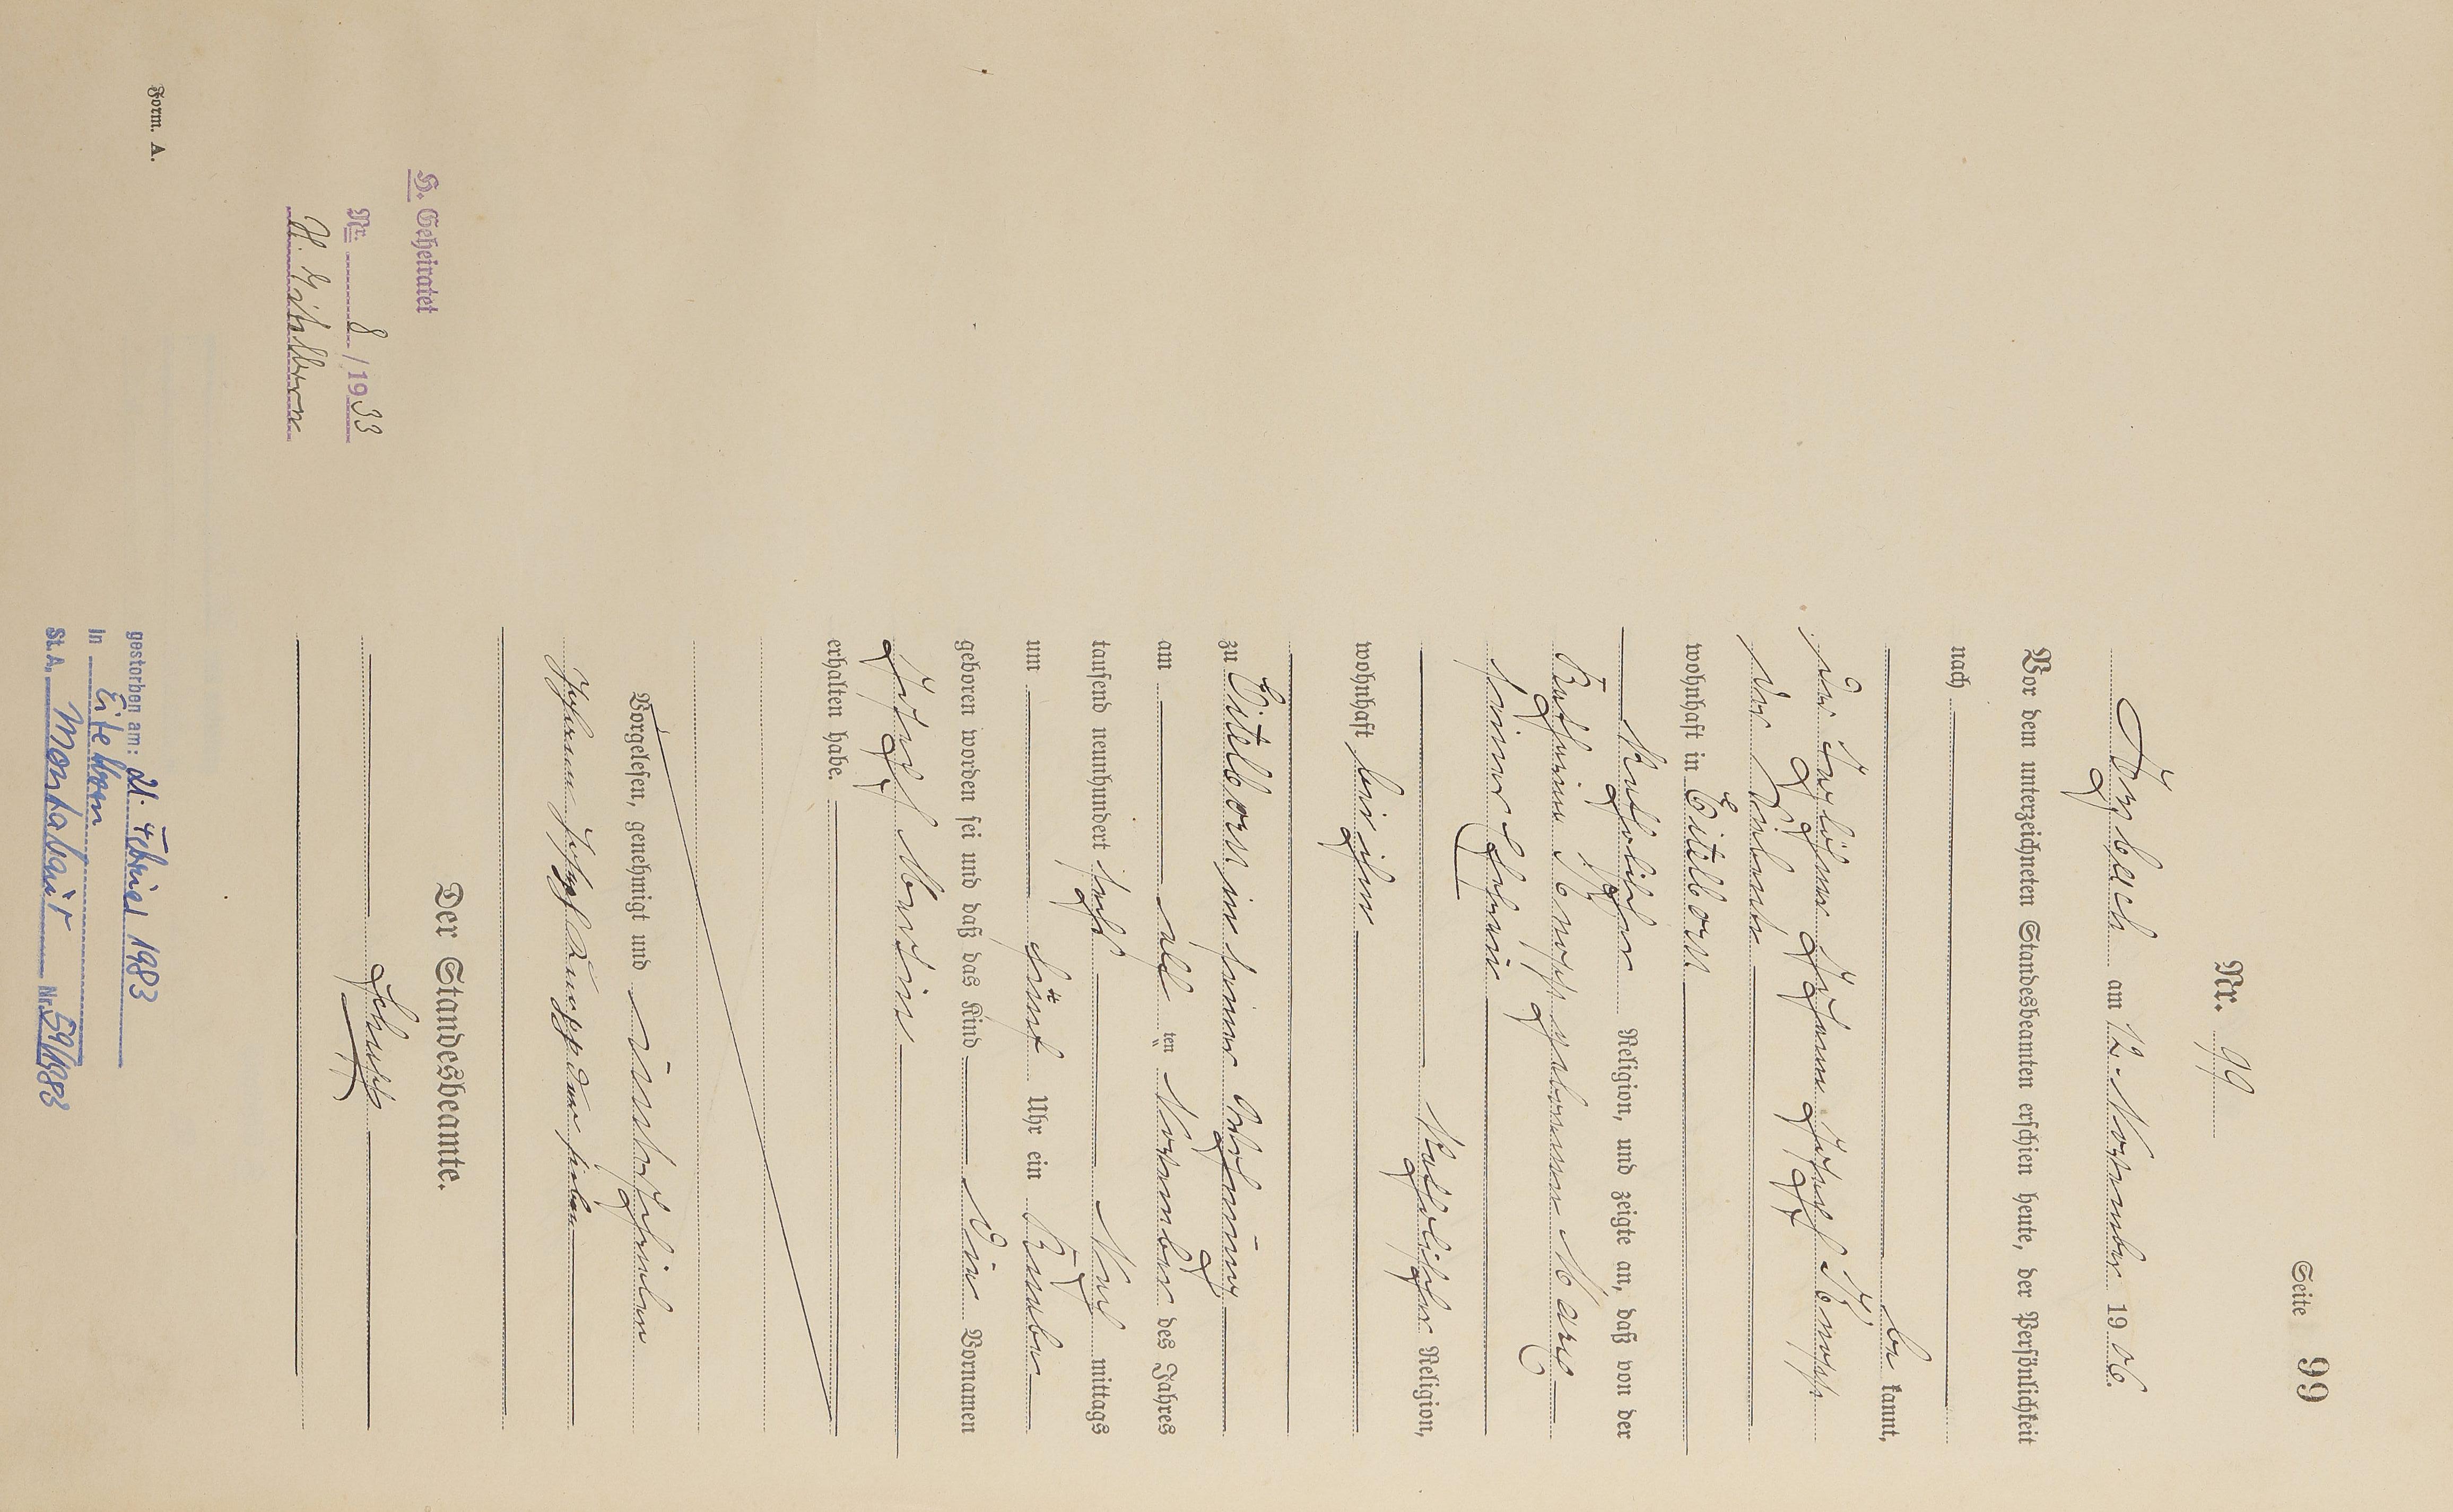 Seite 99
Nr. 99
Arzbach am 12. November 1906.
Vor dem unterzeichneten Standesbeamten erschien heute, der Persönlichkeit
nach
be kannt,
der Taglöhner Johann Joseph Knopp
wohnhaft in Eitelborn
katholischer Religion, und zeigte an, daß von der
Katharina Knopp geborenen Marx
seiner Ehefrau
katholischer Religion,
wohnhaft bei ihm
zu Eitelborn in seiner Wohnung
am elf ten November des Jahres
tausend neunhundert sechs Nach mittags
um fünf Uhr ein Knabe
geboren worden sei und daß das Kind die Vornamen
Josef Martin
erhalten habe.
Vorgelesen, genehmigt und unterschrieben
Johann Joseph Knopp
Der Standesbeamte.
Schupp
H. Geheiratet
Nr. 8 / 1933
Form. A.
gestorben am: 21. Februar 1983
in Eitelborn
St.A. Montabaur Nr. 59/1983